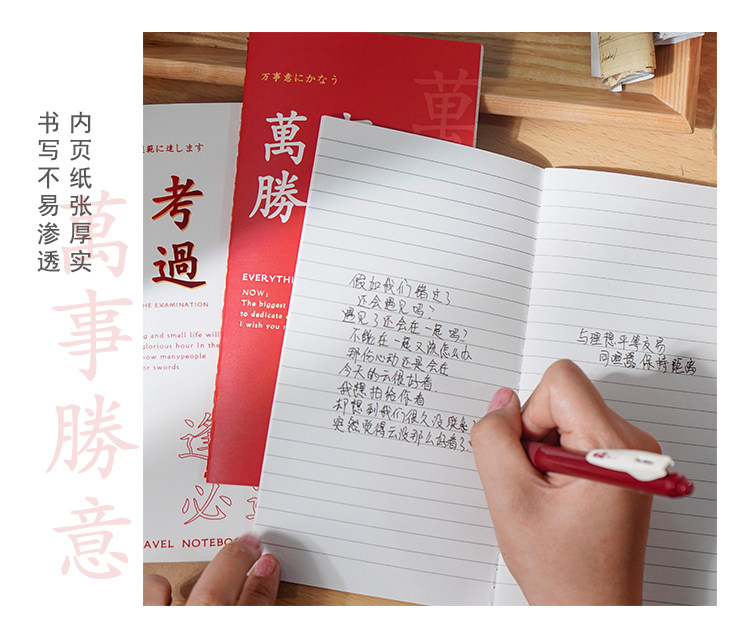 内页纸张厚实
书写不易渗透
萬事勝意
考過
HE EXAMINATION
ng and small life will
glorious hour In the
now manypeople
or swords
逢
必
AVEL NOTEBO
万事意にかなう
萬
萬
勝
EVERYTHI
NOW:
The biggest
to dedicate
I wish you
假如我们错过了
还会遇见吗?
遇见了还会在一起吗?
不能在一起又该怎么办
那份心动还是会在
今天的云很好看
我想拍给你看
却想到我们很久没联系
突然觉得云没那么好看了
与理想平等交易
同遗憾保持距离